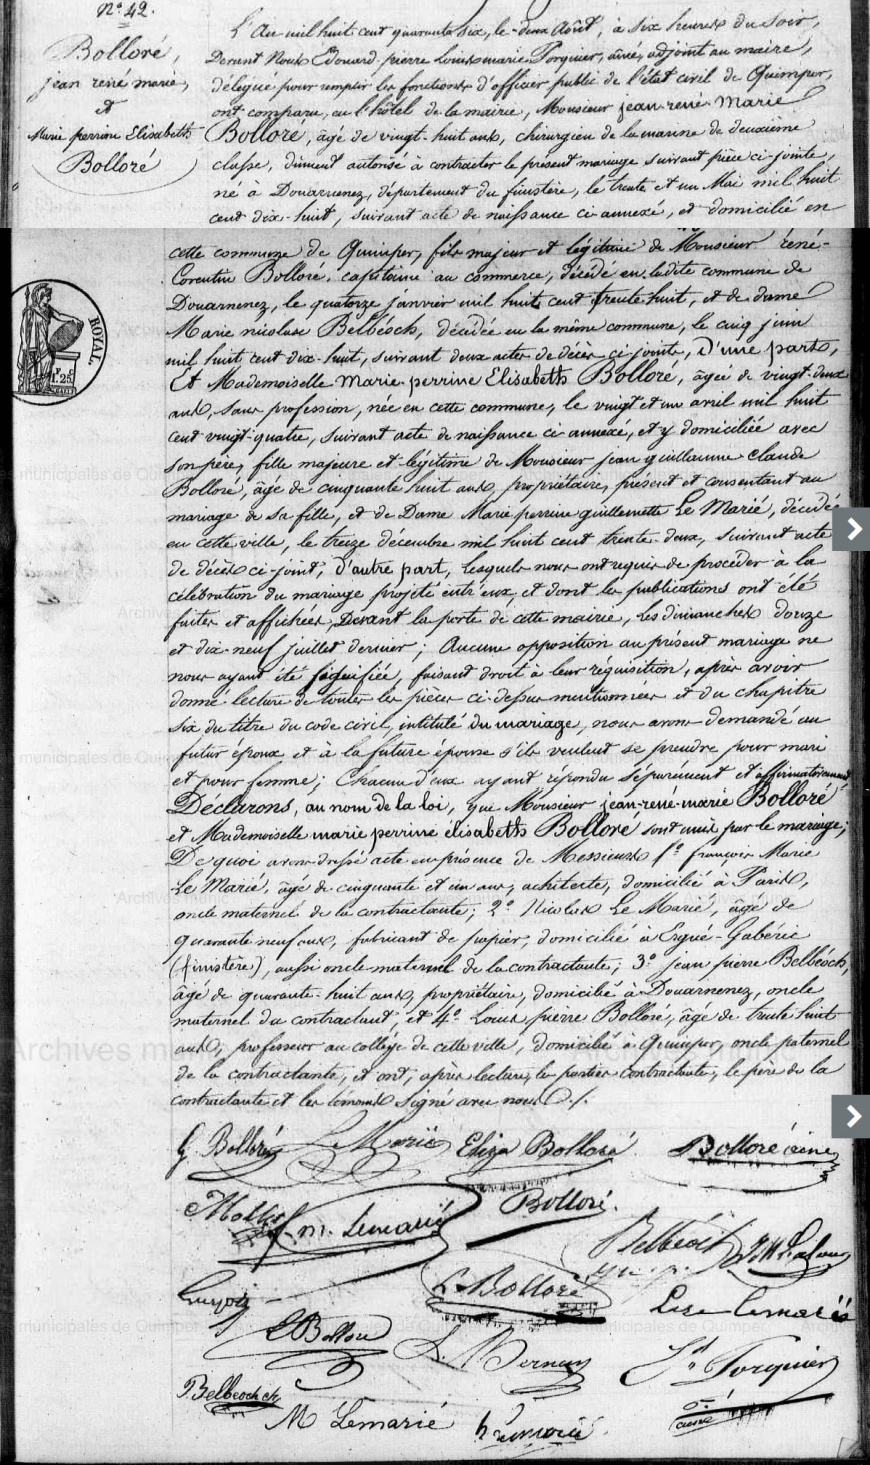 n° 42.
Bolloré,
jean réné marie,
et
Marie perrine Elisabeth
Bolloré
L'An mil huit cent quarante six, le deux Août, à six heures du soir,
Devant Nous Edouard pierre louis marie Porquier, aîné, adjoint au maire,
délégué pour remplir les fonctions d'officier public de l'état civil de Quimper,
ont comparu, en l'hôtel de la mairie, Monsieur jean réné Marie
Bolloré, âgé de vingt-huit ans, chirurgien de la marine de deuxième
classe, dûment autorisé à contracter le présent mariage suivant pièce ci-jointe,
né à Douarnenez, département du finistère, le trente et un Mai mil huit
cent dix-huit, suivant acte de naissance ci-annexé, et domicilié en
cette commune de Quimper, fils majeur et légitime de Monsieur réné-
Corentin Bolloré, capitaine au commerce, décédé en ladite commune de
Douarnenez, le quatorze janvier mil huit cent trente huit, et de dame
Marie nicolase Belbéoch, décédée en la même commune, le cinq juin
mil huit cent dix-huit, suivant deux actes de décès ci-joints, D'une part,
Et Mademoiselle Marie perrine Elisabeth Bolloré, âgée de vingt-deux
ans, sans profession, née en cette commune, le vingt et un avril mil huit
cent vingt-quatre, suivant acte de naissance ci annexé, et y domiciliée avec
son père, fille majeure et légitime de Monsieur jean guillaume claude
Bolloré, âgé de cinquante huit ans, propriétaire, présent et consentant au
mariage de sa fille, et de Dame Marie perrine guillemette Le Marié, décédée
en cette ville, le treize décembre mil huit cent trente deux, suivant acte
de décès ci-joint, d'autre part, lesquels nous ont requis de procéder à la
célébration du mariage projeté entr'eux et dont les publications ont été
faites et affichées, Devant la porte de cette mairie, les dimanches douze
et dix-neuf juillet dernier; Aucune opposition au présent mariage ne
nous ayant été signifiée, faisant droit à leur réquisition, après avoir
donné lecture de toutes les pièces ci-dessus mentionnées et du chapitre
six du titre du code civil, intitulé du mariage, nous avons demandé au
futur époux et à la future épouse s'ils veulent se prendre pour mari
et pour femme; Chacun d'eux ayant répondu séparément et affirmativement
Déclarons, au nom de la loi, que Monsieur jean-réné-marie Bolloré
et Mademoiselle marie perrine élisabeth Bolloré sont unis par le mariage;
De quoi avons dressé acte en présence de Messieurs 1° françois Marie
Le Marié, âgé de cinquante et un ans, architecte, domicilié à Paris,
oncle maternel de la contractante; 2° Nicolas Le Marié, âgé de
quarante neuf ans, fabricant de papier, domicilié à Ergué-Gabéric
(finistère), aussi oncle maternel de la contractante; 3° jean pierre Belbéoch,
âgé de quarante-huit ans, propriétaire, domicilié à Douarnenez, oncle
maternel du contractant, et 4° Louis pierre Bolloré, âgé de trente huit
ans, professeur au collége de cette ville, domicilié à Quimper, oncle paternel
de la contractante, et ont, après lecture, les parties contractantes, le père de la
contractante et les témoins signé avec nous
ROYAL.
1.25
G. Bolloré LeMarié Eliza Bolloré Bolloré aîné
m. Lemarié Bolloré.
Belbéoch
Bolloré Lise Lemarié
Guyot
L Bolloré Porquier
aîné
Belbeoch
M Lemarié
Archives municipales de Quimper